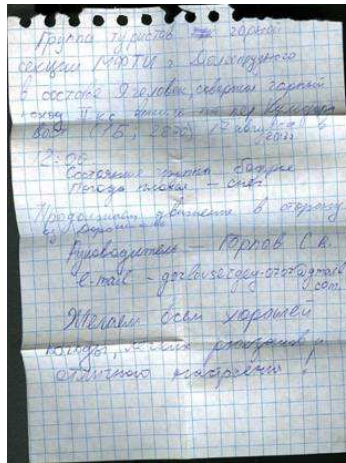 Группа туристов горной
секции МФТИ г. Долгопрудного
в составе 9 человек, совершая горный
поход II к.с. на пер.
(1Б, 2870) в
12:00
Состояние группы бодрое
Погода плохая – снег.
Продолжаем движение в сторону
Руководитель – Горлов С.В.
e-mail –
com.
Желаем всем хорошей
погоды, рюкзаков и
отличного настроения!